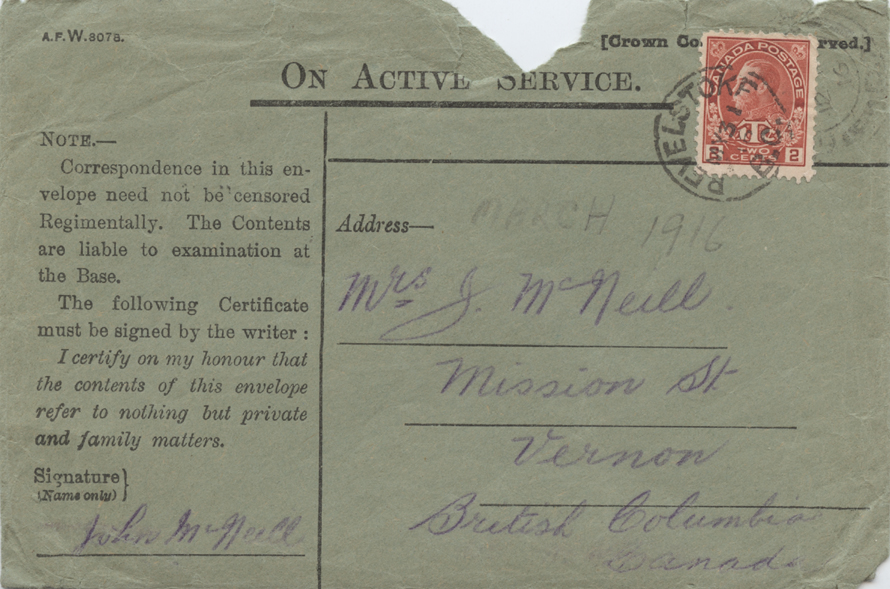 A.F.W.3078.
[Crown Co rved.]
ON ACTIVE SERVICE.
CANADA POSTAGE
1TC
2 TWO CENTS 2
REVELSTOKE
NOTE.—
Correspondence in this en-
velope need not be censored
Regimentally. The Contents
are liable to examination at
the Base.
The following Certificate
must be signed by the writer :
I certify on my honour that
the contents of this envelope
refer to nothing but private
and family matters.
Signature
(Name only)
John McNeill
Address—
MARCH 1916
Mrs J. McNeill.
Mission St.
Vernon
British Columbia
Canada